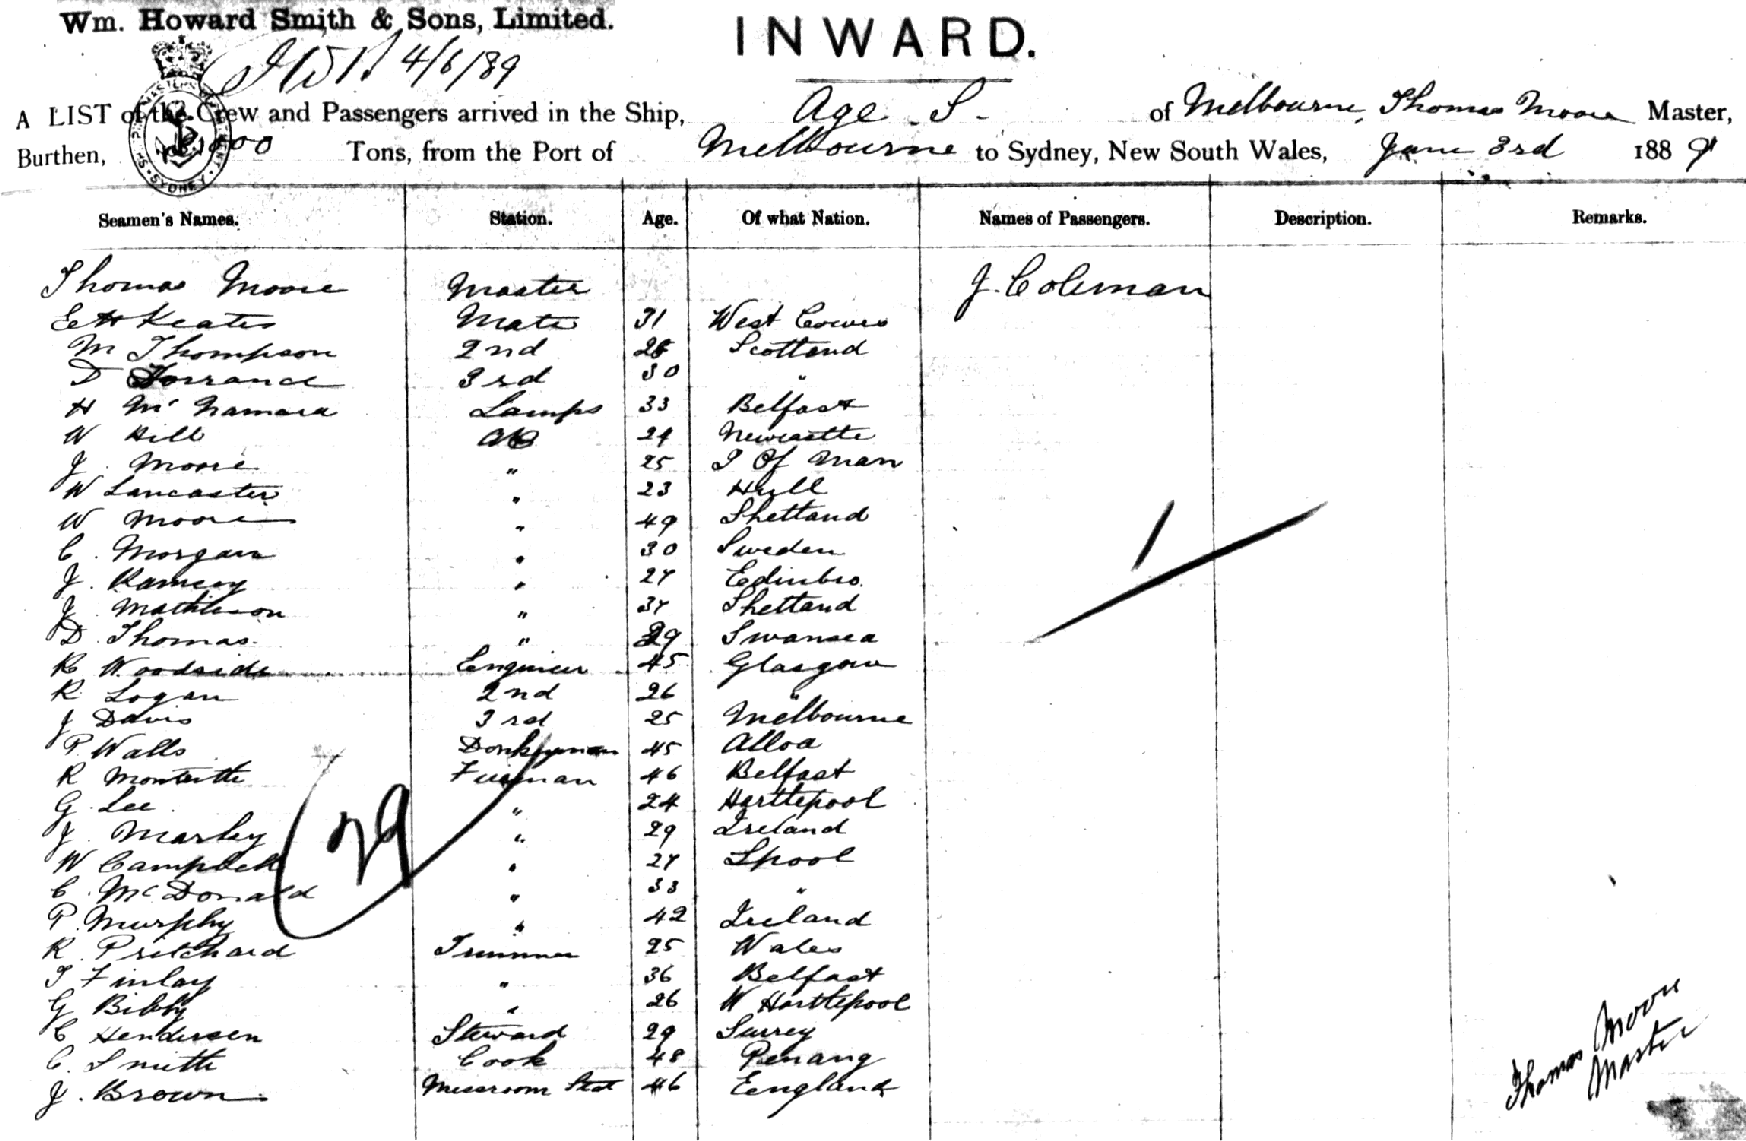 Wm. Howard Smith & Sons, Limited.
INWARD.
4/6/89
A LIST of the Crew and Passengers arrived in the Ship, Age S. of Melbourne, Thomas Moore Master,
Burthen, Tons, from the Port of Melbourne to Sydney, New South Wales, June 3rd 1889
SYDNEY
Seamen's Names. Station. Age. Of what Nation. Names of Passengers. Description. Remarks.
Thomas Moore Master J. Coleman
E H Keates Mate 31 West Cowes
M Thompson 2nd Scotland
D Torrance 3rd 30 "
H McNamara Lamps 33 Belfast
W Hill AB 24 Newcastle
J. Moore " 25 I Of Man
W Lancaster " 23 Hull
W Moore " 49 Shetland
C. Morgan " 30 Sweden
J. Ramsay " 27 Edinbro
J. Mathieson " 37 Shetland
D. Thomas " 29 Swansea
R Woodside Engineer 45 Glasgow
R Logan 2nd 26 "
J Davis 3rd 25 Melbourne
P Walls Donkeyman 45 Alloa
R Monteith Fireman 46 Belfast
G. Lee " 24 Hartlepool
J. Marley " 29 Ireland
W Campbell " 27 Lpool
C. McDonald " 33 "
P. Murphy " 42 Ireland
R. Pritchard Trimmer 25 Wales
T Finlay " 36 Belfast
G Bibby " 26 W Hartlepool
C Hendersen Steward 29 Surrey
C. Smith Cook 48 Penang
J. Brown Messroom Stwd 46 Eengland
29
1
Thomas Moore
Master